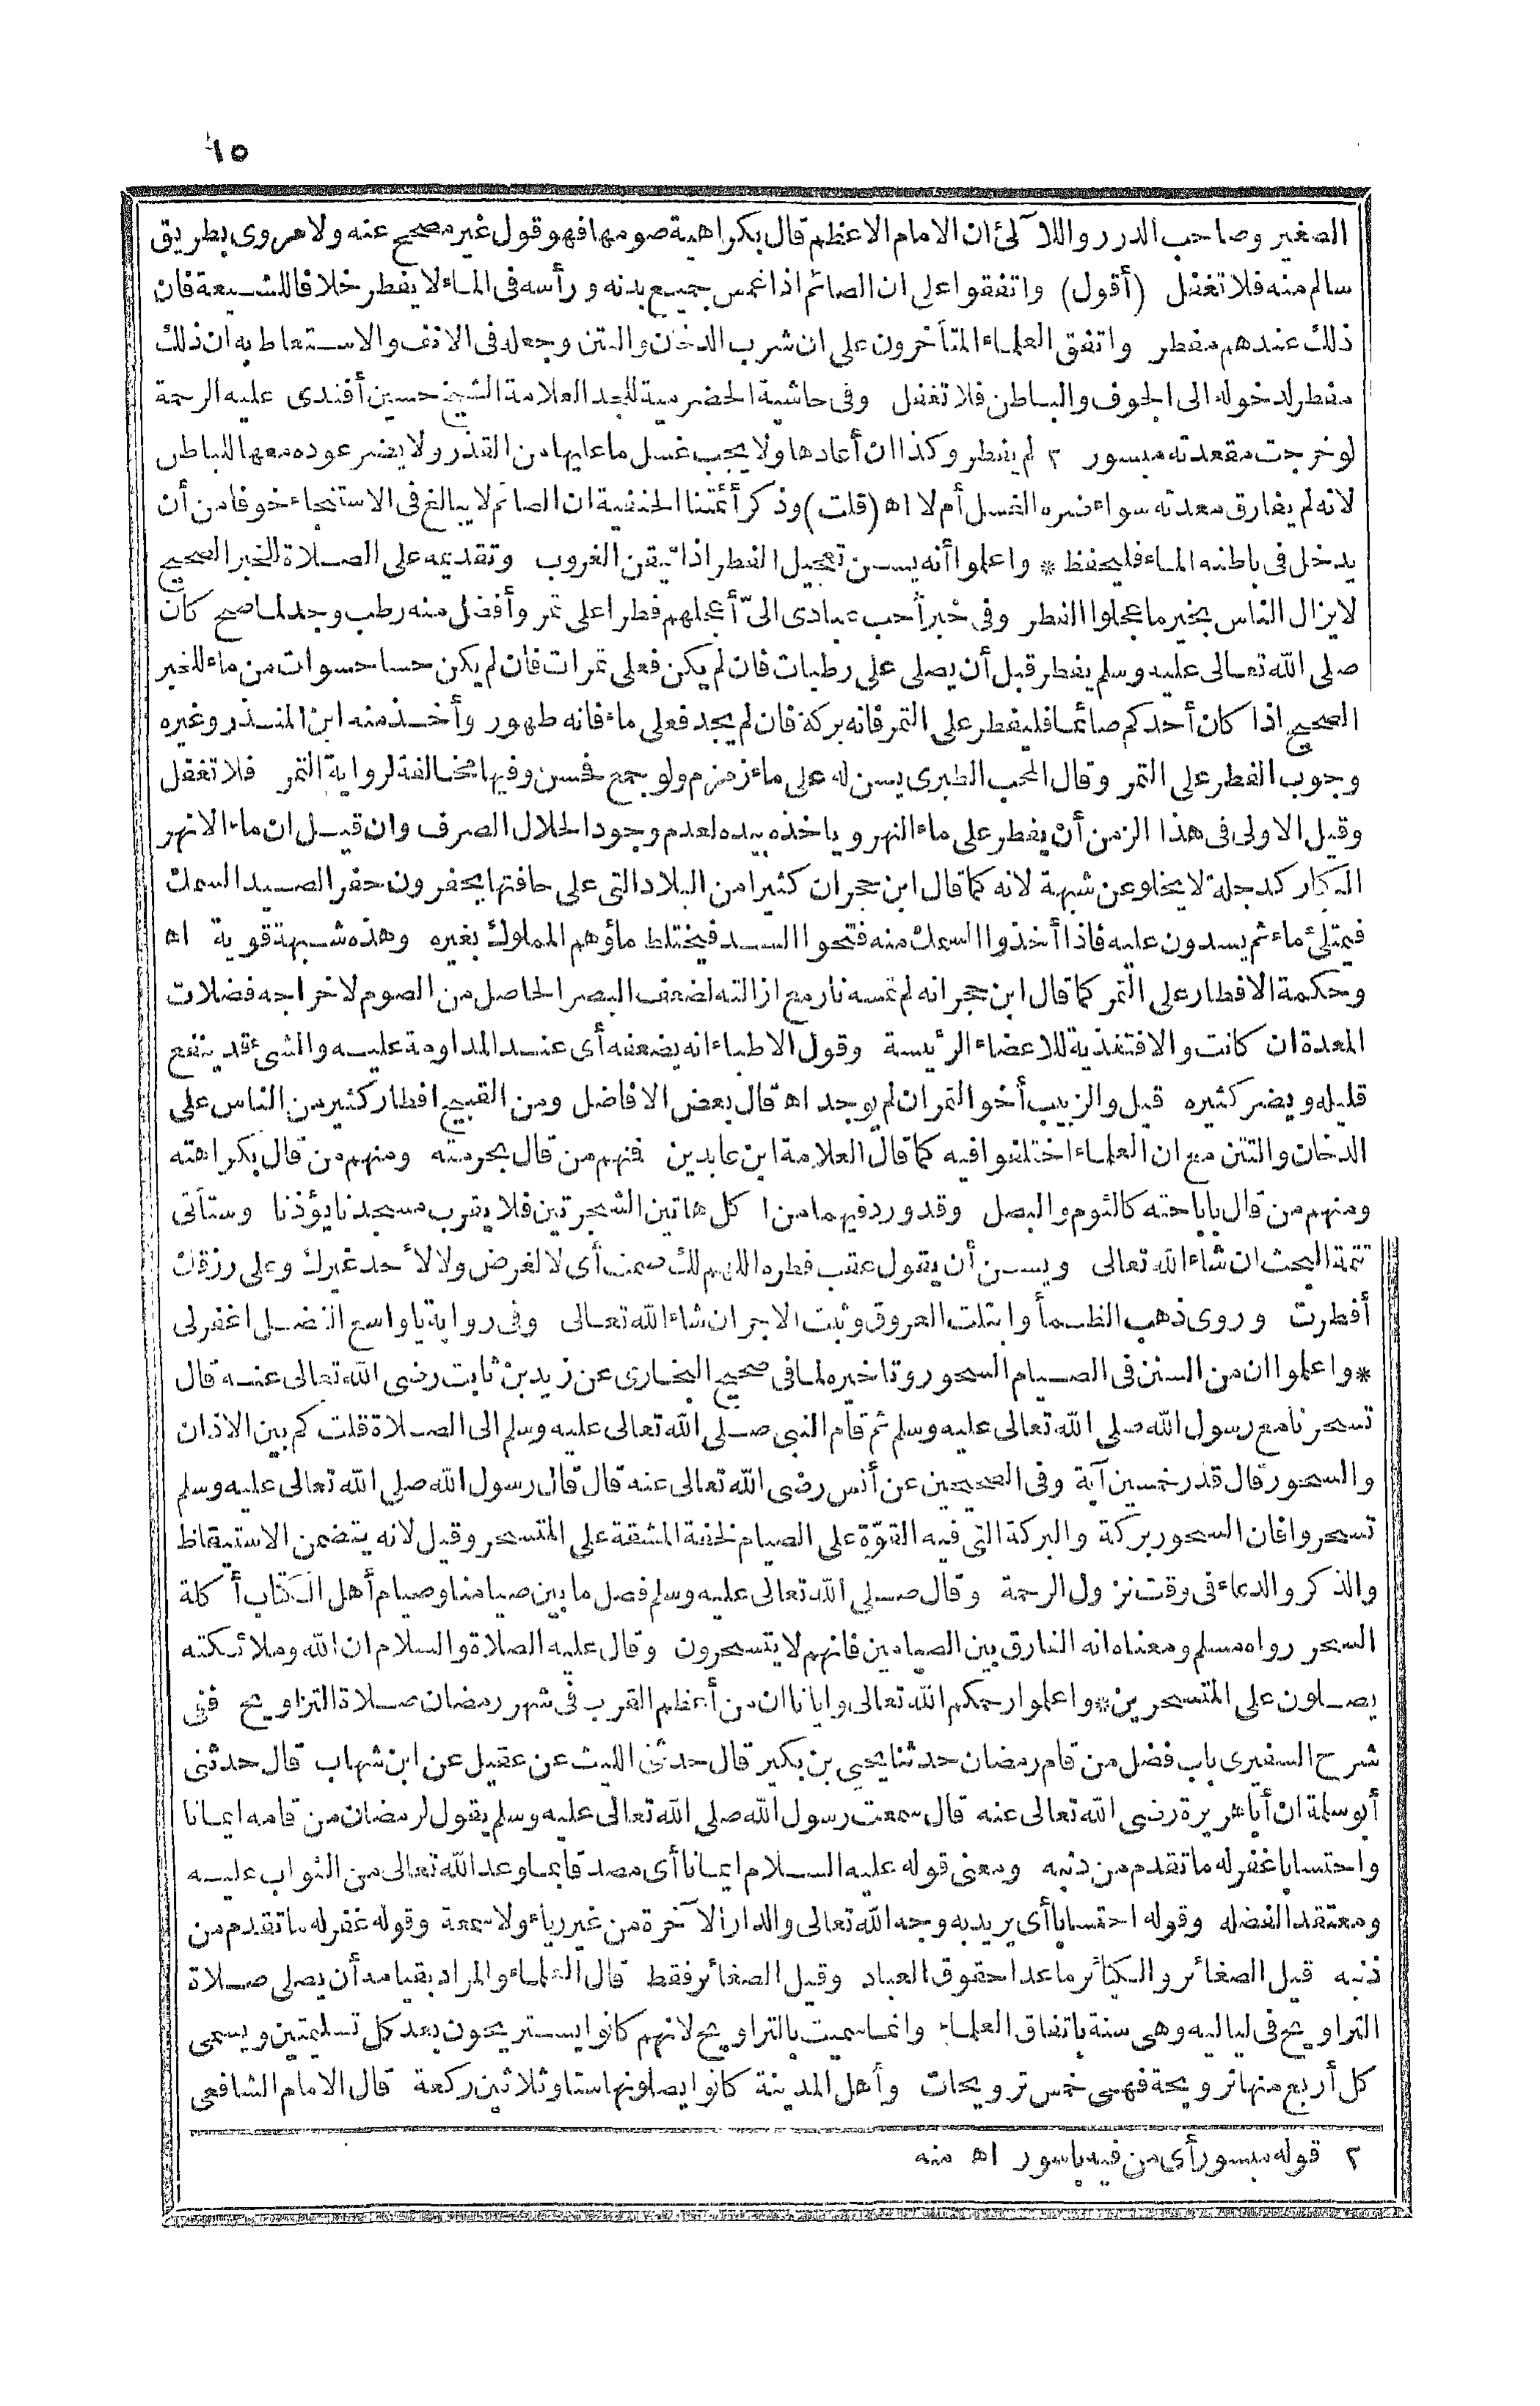 ٦٥
الصغير وصاحب الدرر واللآلئ ان الامام الاعظم قال بكراهية صومها فهو قول غير صحيح عنه ولا مروى بطريق
سالم منه فلا تغفل (أقول) واتفقوا على ان الصائم اذا غمس جميع بدنه ورأسه فى الماء لا يفطر خلافا للشيعة فان
ذلك عندهم مفطر واتفق العلماء المتأخرون على ان شرب الدخان والتتن وجعله فى الانف والاستعاط به ان ذلك
مفطر لدخوله الى الجوف والباطن فلا تغفل وفى حاشية الحضرمية للجد العلامة الشيخ حسين أفندى عليه الرحمة
لو خرجت مقعدته مبسور ٢ لم يفطر وكذا ان أعادها ولا يجب غسل ما عليها من القذر ولا يضر عوده معها للباطن
لانه لم يفارق معدته سواء ضره الغسل أم لا اه (قلت) وذكر أئمتنا الحنفية ان الصائم لا يبالغ فى الاستنجاء خوفا من أن
يدخل فى باطنه الماء فليحفظ * واعلموا أنه يسن تعجيل الفطر اذا تيقن الغروب وتقديمه على الصلاة للخبر الصحيح
لا يزال الناس بخير ما عجلوا الفطر وفى خبر أحب عبادى الىّ أعجلهم فطرا على تمر وأفضل منه رطب وجد لما صح كان
صلى الله تعالى عليه وسلم يفطر قبل أن يصلى على رطبات فان لم يكن فعلى تمرات فان لم يكن حسا حسوات من ماء للخبر
الصحيح اذا كان أحدكم صائما فليفطر على التمر فانه بركة فان لم يجد فعلى ماء فانه طهور وأخذ منه ابن المنذر وغيره
وجوب الفطر على التمر وقال المحب الطبرى يسن له على ماء زمزم ولو جمع فحسن وفيها مخالفة لرواية التمر فلا تغفل
وقيل الاولى فى هذا الزمن أن يفطر على ماء النهر وياخذه بيده لعدم وجود الحلال الصرف وان قيل ان ماء الانهر
الكبار كدجلة لا يخلو عن شبهة لانه كما قال ابن حجر ان كثيرا من البلاد التى على حافتها يحفرون حفر الصيد السمك
فيمتلئ ماء ثم يسدون عليه فاذا أخذوا السمك منه فتحوا السد فيختلط ماؤهم المملوك بغيره وهذه شبهة قوية اه
وحكمة الافطار على التمر كما قال ابن حجر انه لم تمسه نار مع ازالته لضعف البصر الحاصل من الصوم لاخراجه فضلات
المعدة ان كانت والا فتغذية للاعضاء الرئيسة وقول الاطباء انه يضعفه أى عند المداومة عليه والشئ قد ينفع
قليله ويضر كثيره قيل والزبيب أخو التمر ان لم يوجد اه قال بعض الافاضل ومن القبيح افطار كثير من الناس على
الدخان والتتن مع ان العلماء اختلفوا فيه كما قال العلامة ابن عابدين فمنهم من قال بحرمته ومنهم من قال بكراهته
ومنهم من قال باباحته كالثوم والبصل وقد ورد فيهما من ا كل هاتين الشجرتين فلا يقرب مسجدنا يؤذنا وستأتى
تتمة البحث ان شاء الله تعالى ويسن أن يقول عقب فطره اللهم لك صمت أى لا لغرض ولا لأحد غيرك وعلى رزقك
أفطرت وروى ذهب الظمأ وابتلت العروق وثبت الاجر ان شاء الله تعالى وفى رواية يا واسع الفضل اغفر لى
* واعلموا ان من السنن فى الصيام السحور وتاخيره لما فى صحيح البخارى عن زيد بن ثابت رضى الله تعالى عنه قال
تسحرنا مع رسول الله صلى الله تعالى عليه وسلم ثم قام النبى صلى الله تعالى عليه وسلم الى الصلاة قلت كم بين الاذان
والسحور قال قدر خمسين آية وفى الصحيحين عن أنس رضى الله تعالى عنه قال قال رسول الله صلى الله تعالى عليه وسلم
تسحروا فان السحور بركة والبركة التى فيه القوّة على الصيام لخفة المشقة على المتسحر وقيل لانه يتضمن الاستيقاظ
والذكر والدعاء فى وقت نزول الرحمة وقال صلى الله تعالى عليه وسلم فصل ما بين صيامنا وصيام أهل الكتاب أكلة
السحر رواه مسلم ومعناه انه الفارق بين الصيامين فانهم لا يتسحرون وقال عليه الصلاة والسلام ان الله وملائكته
يصلون على المتسحرين * واعلموا رحمكم الله تعالى وايانا ان من أعظم القرب فى شهر رمضان صلاة التراويح ففى
شرح السفيرى باب فضل من قام رمضان حدثنا يحيى بن بكير قال حدثنى الليث عن عقيل عن ابن شهاب قال حدثنى
أبو سلمة ان أبا هريرة رضى الله تعالى عنه قال سمعت رسول الله صلى الله تعالى عليه وسلم يقول لرمضان من قامه ايمانا
واحتسابا غفر له ما تقدم من ذنبه ومعنى قوله عليه السلام ايمانا أى مصدقا بما وعد الله تعالى من الثواب عليه
ومعتقد الفضله وقوله احتسابا أى يريد به وجه الله تعالى والدار الآخرة من غير رياء ولا سمعة وقوله غفر له ما تقدم من
ذنبه قيل الصغائر والكبائر ما عدا حقوق العباد وقيل الصغائر فقط قال العلماء والمراد بقيامه أن يصلى صلاة
التراويح فى لياليه وهى سنة باتفاق العلماء وانما سميت بالتراويح لانهم كانوا يستريحون بعد كل تسليمتين ويسمى
كل أربع منها ترويحة فهى خمس ترويحات وأهل المدينة كانوا يصلونها ستا وثلاثين ركعة قال الامام الشافعى
٢ قوله مبسور أى من فيه باسور اه منه